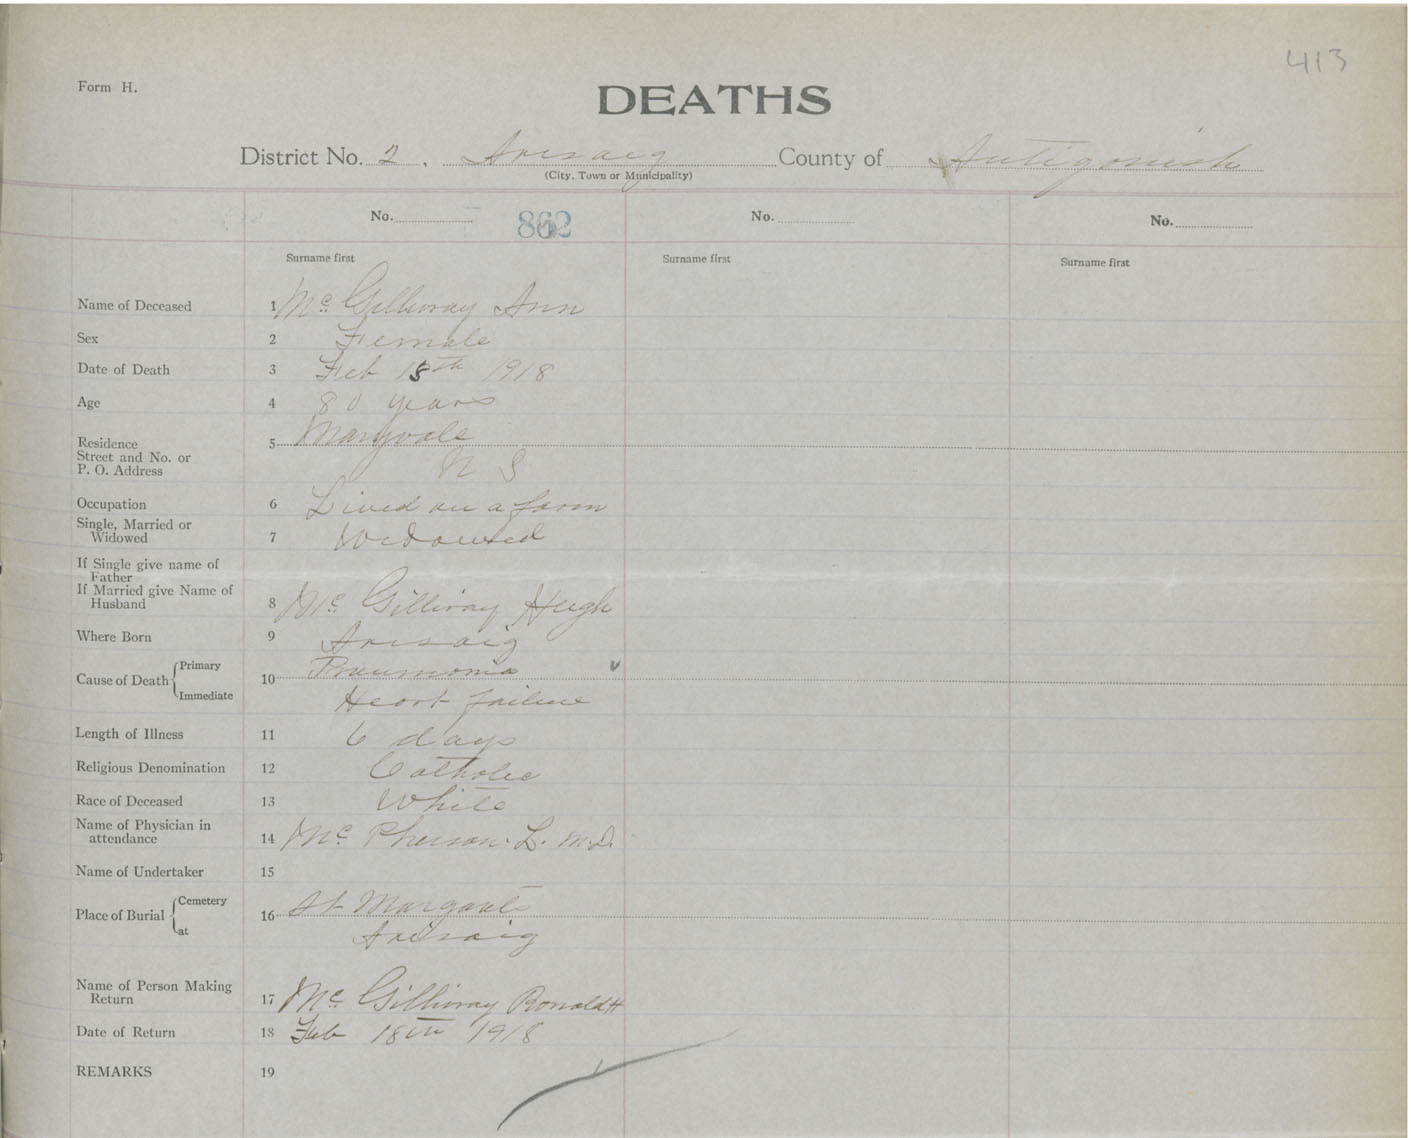 413
Form H.
DEATHS
District No. 2, Arisaig County of Antigonish
(City, Town or Municipality)
No. 862 No. No.
Surname first Surname first Surname first
Name of Deceased 1 Mc Gillivray Ann
Sex 2 Female
Date of Death 3 Feb 15th 1918
Age 4 80 years
Residence 5 Maryvale
Street and No. or
P. O. Address N S
Occupation 6 Lived on a farm
Single, Married or
Widowed 7 Widowed
If Single give name of
Father
If Married give Name of
Husband 8 Mc Gillivray Hugh
Where Born 9 Arisaig
Cause of Death Primary 10 Pneumonia
Immediate Heart failure
Length of Illness 11 6 days
Religious Denomination 12 Catholic
Race of Deceased 13 White
Name of Physician in
attendance 14 Mc Pherson. L. M.D.
Name of Undertaker 15
Place of Burial Cemetery 16 St Margaets
at Arisaig
Name of Person Making
Return 17 Mc Gillivray Ronald H
Date of Return 18 Feb 18th 1918
REMARKS 19